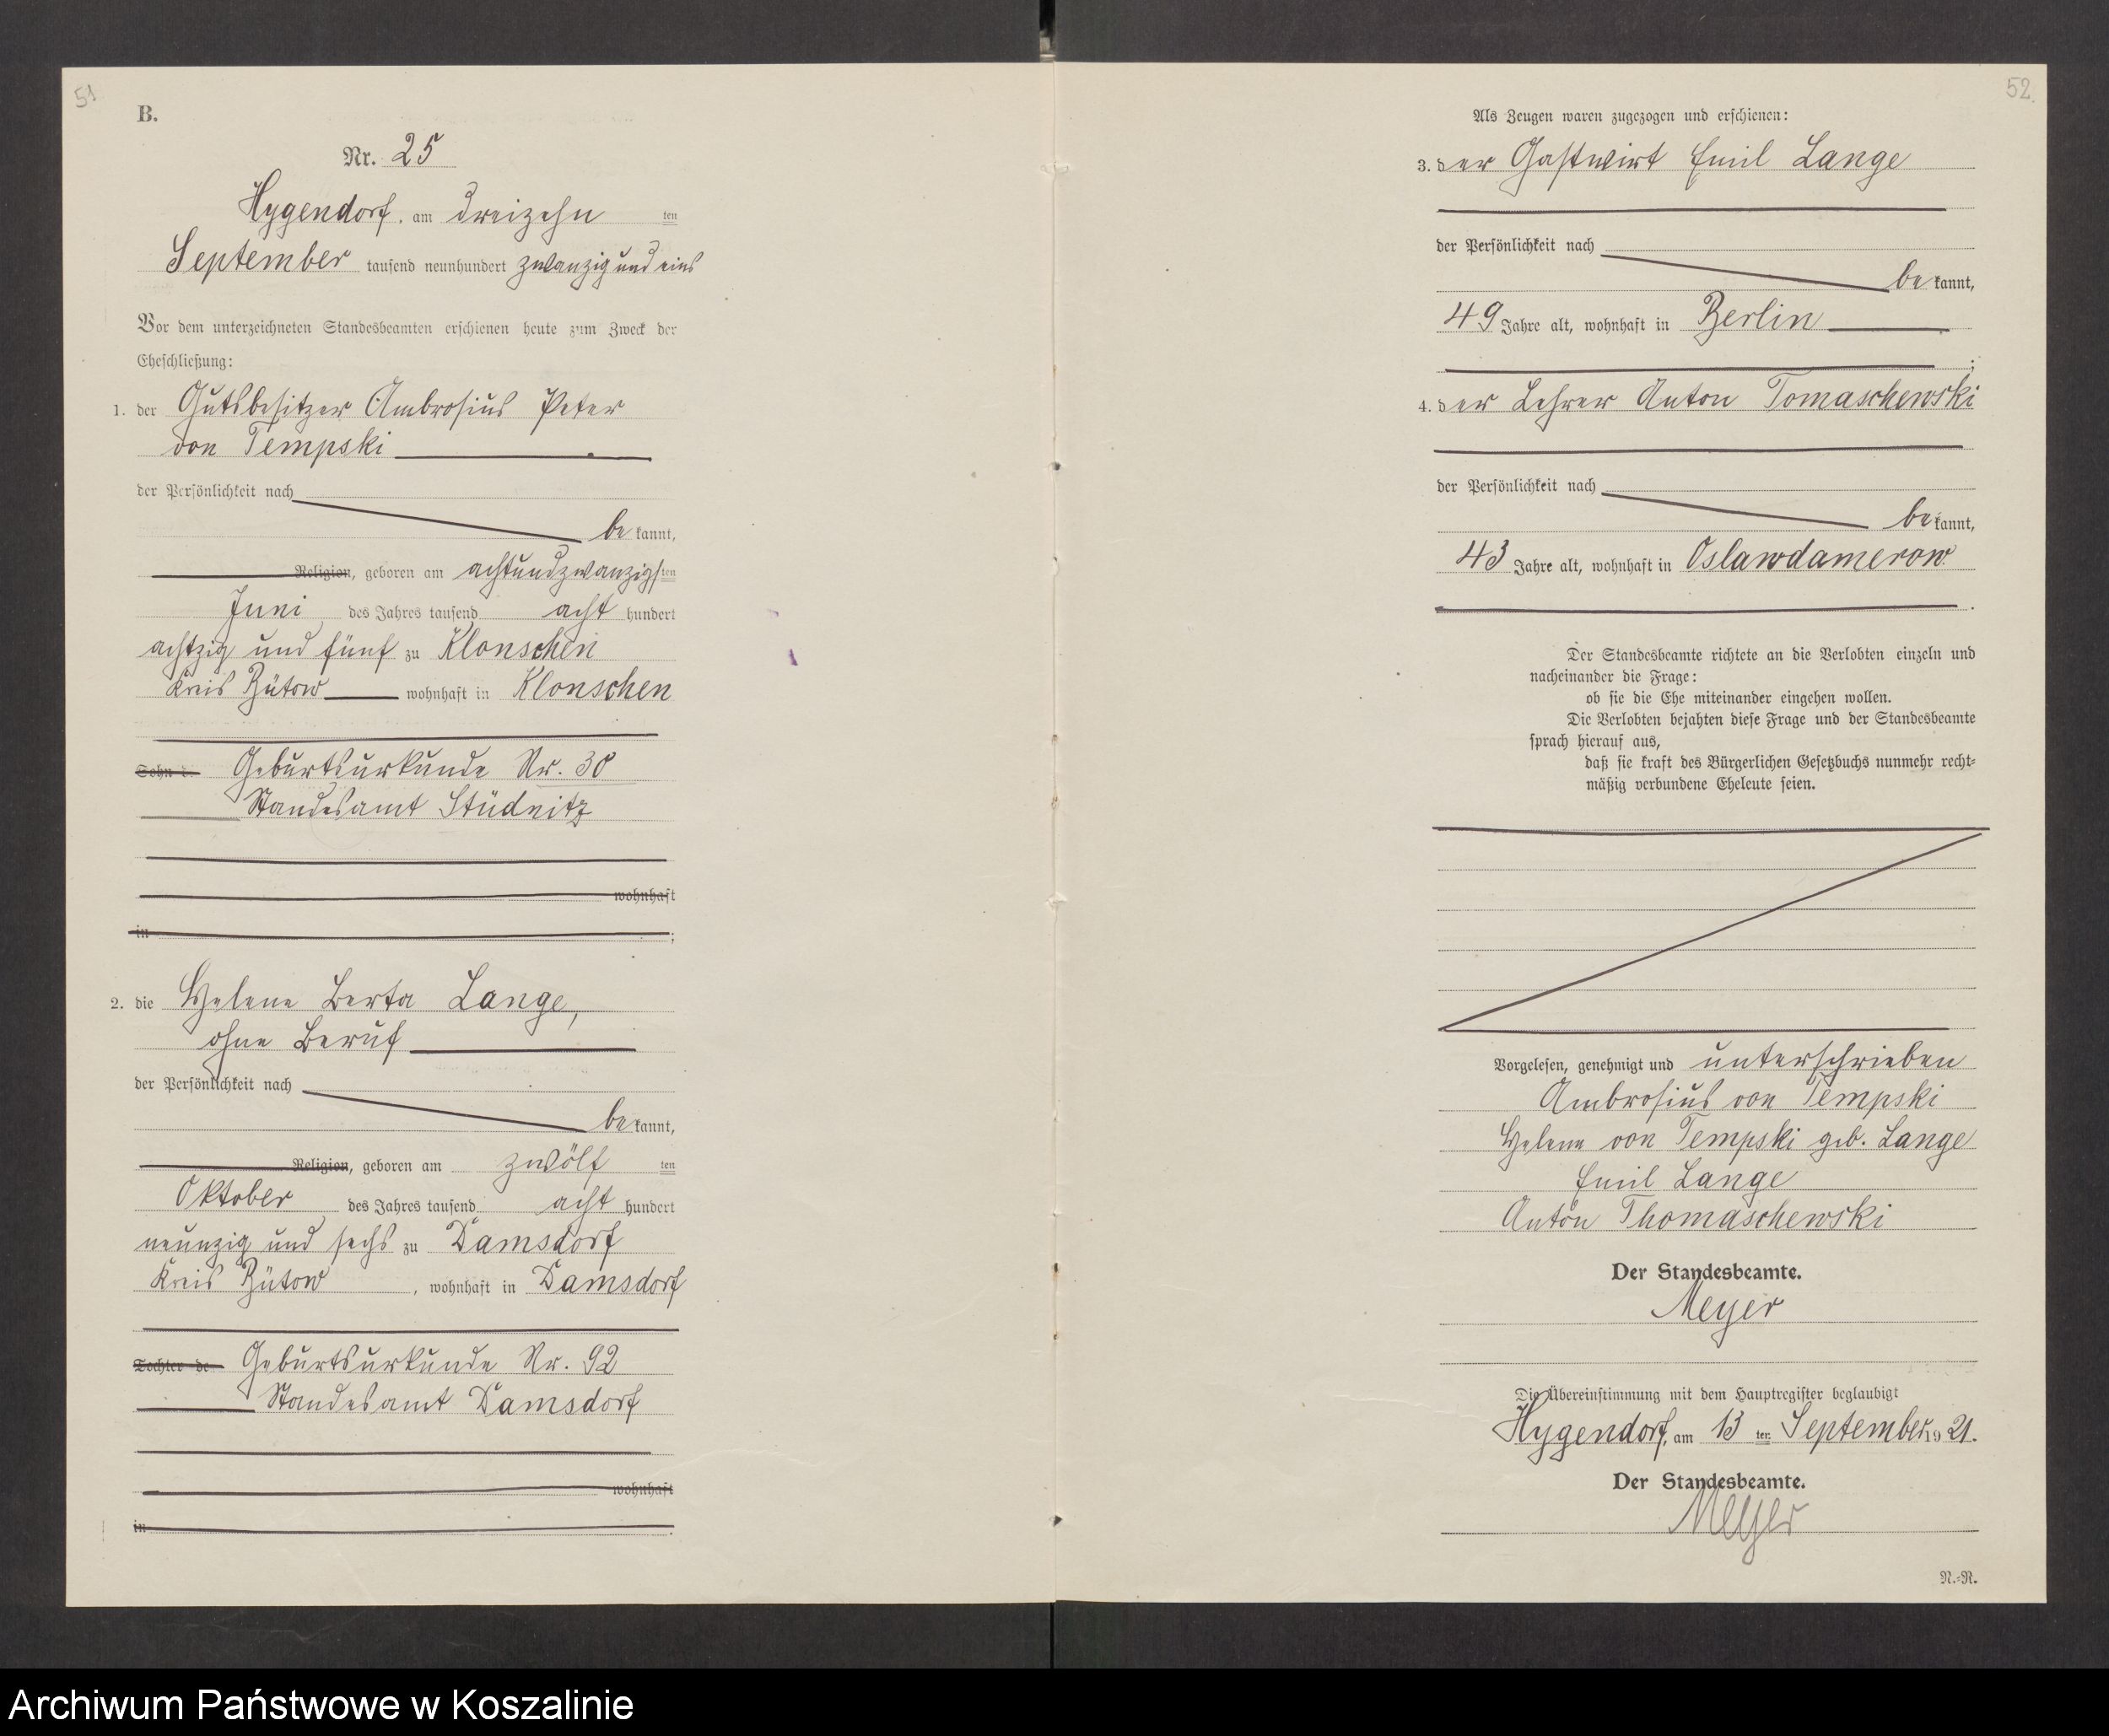 51
B.
Nr. 25
Hygendorf, am dreizehn ten
September tausend neunhundert zwanzig und eins
Vor dem unterzeichneten Standesbeamten erschienen heute zum Zweck der
Eheschließung:
1. der Gutsbesitzer Ambrosius Peter
von Tempski
der Persönlichkeit nach
be kannt,
Religion, geboren am achtundzwanzigsten
Juni des Jahres tausend acht hundert
achtzig und fünf zu Klonschen
Kreis Bütow wohnhaft in Klonschen
Sohn d. Geburtsurkunde Nr. 30
Standesamt Stüdnitz
wohnhaft
in ;
2. die Helene Berta Lange,
ohne Beruf
der Persönlichkeit nach
be kannt,
Religion, geboren am zwölf ten
Oktober des Jahres tausend acht hundert
neunzig und sechs zu Damsdorf
Kreis Bütow, wohnhaft in Damsdorf
Tochter de Geburtsurkunde Nr. 92
Standesamt Damsdorf
wohnhaft
in .
52
Als Zeugen waren zugezogen und erschienen:
3. der Gastwirt Emil Lange
der Persönlichkeit nach
be kannt,
49 Jahre alt, wohnhaft in Berlin
;
4. der Lehrer Anton Tomaschewski
der Persönlichkeit nach
be kannt,
43 Jahre alt, wohnhaft in Oslawdamerow
.
Der Standesbeamte richtete an die Verlobten einzeln und
nacheinander die Frage:
ob sie die Ehe miteinander eingehen wollen.
Die Verlobten bejahten diese Frage und der Standesbeamte
sprach hierauf aus,
daß sie kraft des Bürgerlichen Gesetzbuchs nunmehr recht-
mäßig verbundene Eheleute seien.
Vorgelesen, genehmigt und unterschrieben
Ambrosius von Tempski
Helene von Tempski geb. Lange
Emil Lange
Anton Thomaschewski
Der Standesbeamte.
Meyer
Die Übereinstimmung mit dem Hauptregister beglaubigt
Hygendorf, am 13 ten September 1921.
Der Standesbeamte.
Meyer
N.-R.
Archiwum Państwowe w Koszalinie